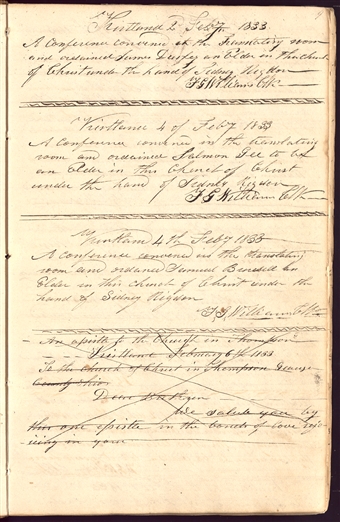 Kirtland 2 Feby 1833
A Conference convened at the translating room
and ordained James Durfey an Elder in the Church
of Christ under the hand of Sidney Rigdon
F G Williams Clk
Kirtland 4 of Feby 1833
A Conference convened in the translating
room and ordained Salmon Gee to be
an Elder in this Church of Christ
under the hand of Sidney Rigdon
F G Williams Clk
Kirtland 4th Feby 1833
A conference convened in the translating
room and ordained Samuel Benedid an
Elder in this church of Christ under the
hand of Sidney Rigdon
F G Williams Clk
An epistle to the Church in Thompson
Kirtland February 6th 1833
To the Church of Christ in Thompson Geauga
County Ohio
Dear Brethren
We salute you by
this our epistle in the bonds of love rejo
icing in your